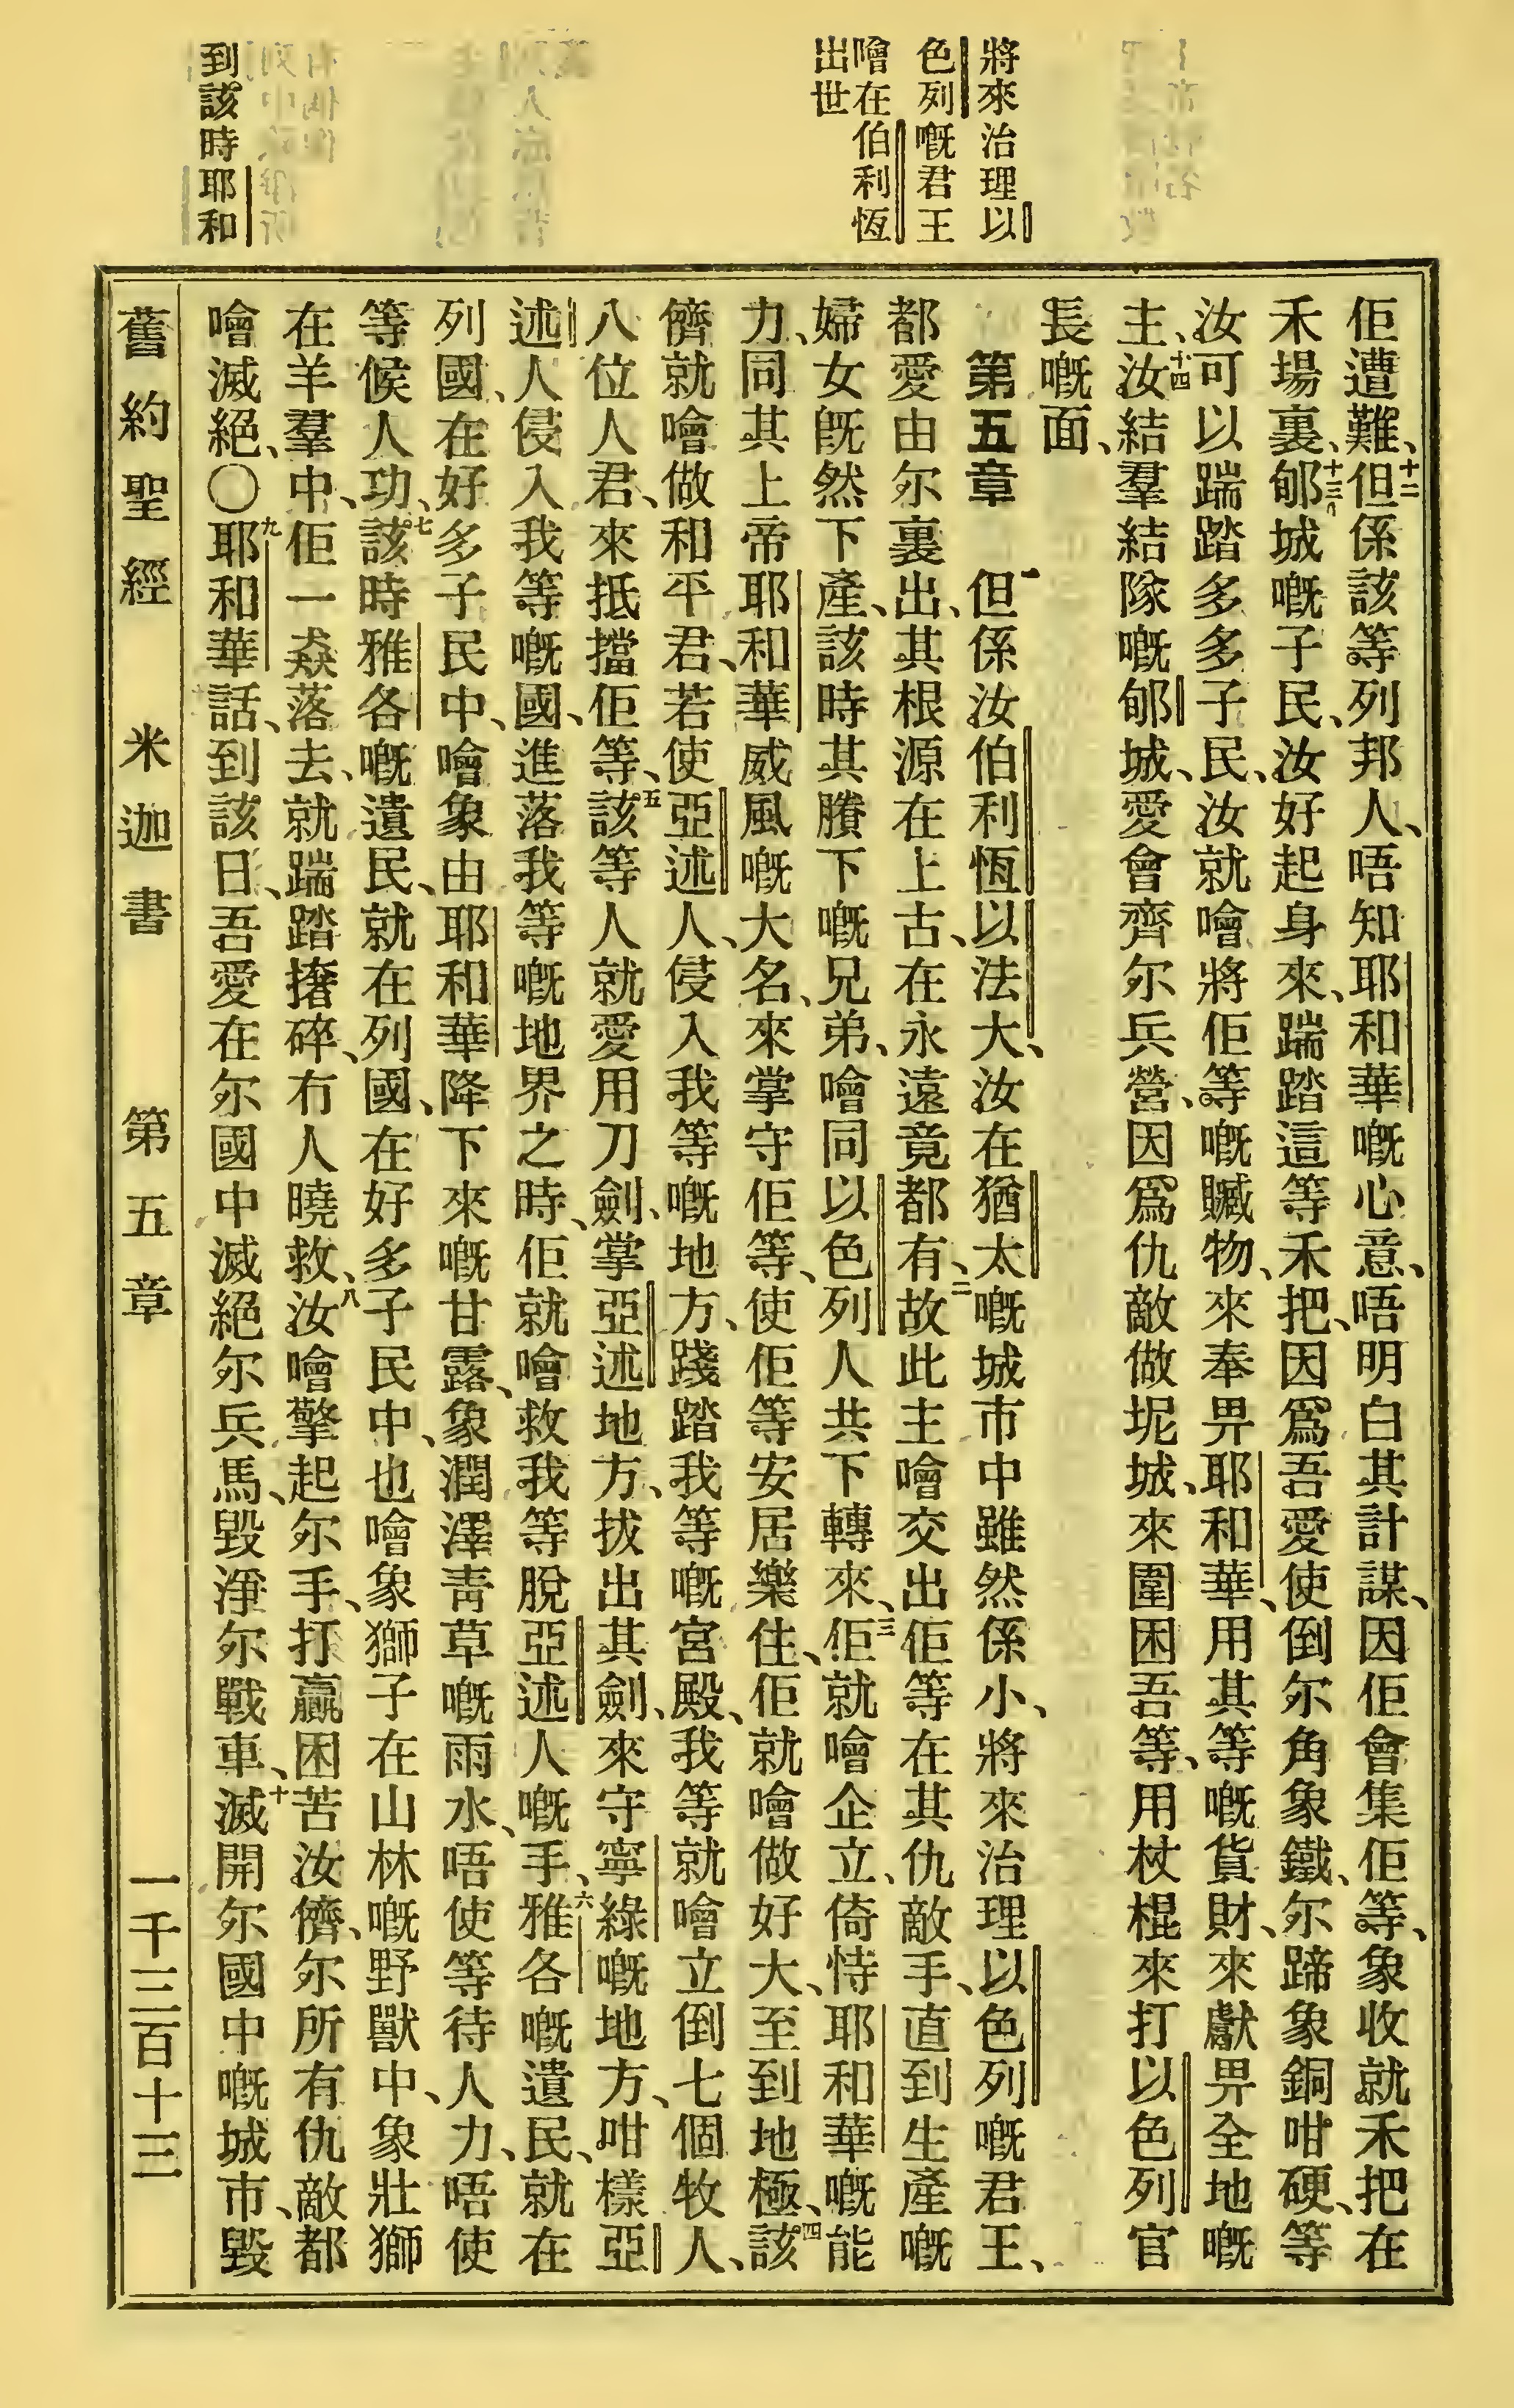 將來治理以
色列嘅君王
噲在伯利恆
出世
到該時耶和
佢遭難、十二但係該等列邦人、唔知耶和華嘅心意、唔明白其計謀、因佢會集佢等、象收就禾把在
禾場裏、十三郇城嘅子民、汝好起身來、踹踏這等禾把、因爲吾愛使倒尔角象鐵、尔蹄象銅咁硬、等
汝可以踹踏多多子民、汝就噲將佢等嘅贓物、來奉畀耶和華、用其等嘅貨財、來獻畀全地嘅
主、十四汝結羣結隊嘅郇城、愛會齊尔兵營、因爲仇敵做坭城、來圍困吾等、用杖棍來打以色列官
長嘅面、
第五章　一但係汝伯利恆以法大、汝在猶太嘅城市中雖然係小、將來治理以色列嘅君王、
都愛由尔裏出、其根源在上古、在永遠竟都有、二故此主噲交出佢等在其仇敵手、直到生產嘅
婦女旣然下產、該時其賸下嘅兄弟、噲同以色列人共下轉來、三佢就噲企立、倚恃耶和華嘅能
力、同其上帝耶和華威風嘅大名、來掌守佢等、使佢等安居樂住、佢就噲做好大、至到地極、四該
儕就噲做和平君、若使亞述人、侵入我等嘅地方、踐踏我等嘅宮殿、我等就噲立倒七個牧人、
八位人君、來抵擋佢等、五該等人就愛用刀劍、掌亞述地方、拔出其劍、來守寧綠嘅地方、咁樣亞
述人侵入我等嘅國、進落我等嘅地界之時、佢就噲救我等脫亞述人嘅手、六雅各嘅遺民、就在
列國、在好多子民中、噲象由耶和華降下來嘅甘露、象潤澤靑草嘅雨水、唔使等待人力、唔使
等候人功、七該時雅各嘅遺民、就在列國、在好多子民中、也噲象獅子在山林嘅野獸中、象壯獅
在羊羣中、佢一猋落去、就踹踏撦碎、冇人曉救、八汝噲擎起尔手、打贏困苦汝儕、尔所有仇敵都
噲滅絕、〇九耶和華話、到該日、吾愛在尔國中滅絕尔兵馬、毀淨尔戰車、十滅開尔國中嘅城市、毀
舊約聖經　米迦書　第五章　一千三百十三